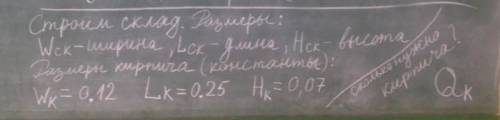 Строим склад. Размеры:
Wск-ширина, Lск-длина, Hск-высота
Размеры кирпича (константы):
Wк = 0.12 Lк = 0.25 Hк = 0,07
сколько нужно
кирпича?
Qк